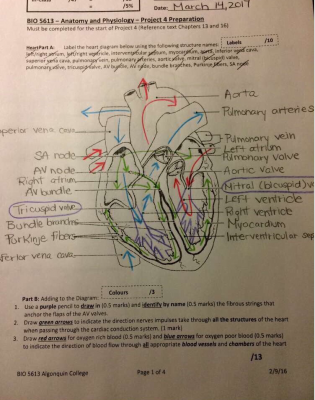 /5%
Date: March 14, 2017
BIO 5613 – Anatomy and Physiology – Project 4 Preparation
Must be completed for the start of Project 4 (Reference text Chapters 13 and 16)
Labels /10
HeartPart A: Label the heart diagram below using the following structure names:
left/right atrium, left/right ventricle, interventricular septum, myocardium, aorta, inferior vena cava,
superior vena cava, pulmonary vein, pulmonary arteries, aortic valve, mitral (bicuspid) valve,
pulmonary valve, tricuspid valve, AV bundle, AV node, bundle branches, Purkinje fibers, SA node
Aorta
Pulmonary arteries
superior vena cava
Pulmonary vein
Left atrium
SA node
Pulmonary valve
AV node
Aortic valve
Right atrium
Mitral (bicuspid) v
AV bundle
Left ventricle
Tricuspid valve
Right ventricle
Bundle branches
Myocardium
Purkinje fibers
Interventricular sep
inferior vena cava
Colours /3
Part B: Adding to the Diagram:
1. Use a purple pencil to draw in (0.5 marks) and identify by name (0.5 marks) the fibrous strings that
anchor the flaps of the AV valves.
2. Draw green arrows to indicate the direction nerve impulses take through all the structures of the heart
when passing through the cardiac conduction system. (1 mark)
3. Draw red arrows for oxygen rich blood (0.5 marks) and blue arrows for oxygen poor blood (0.5 marks)
to indicate the direction of blood flow through all appropriate blood vessels and chambers of the heart
/13
BIO 5613 Algonquin College
Page 1 of 4
2/9/16